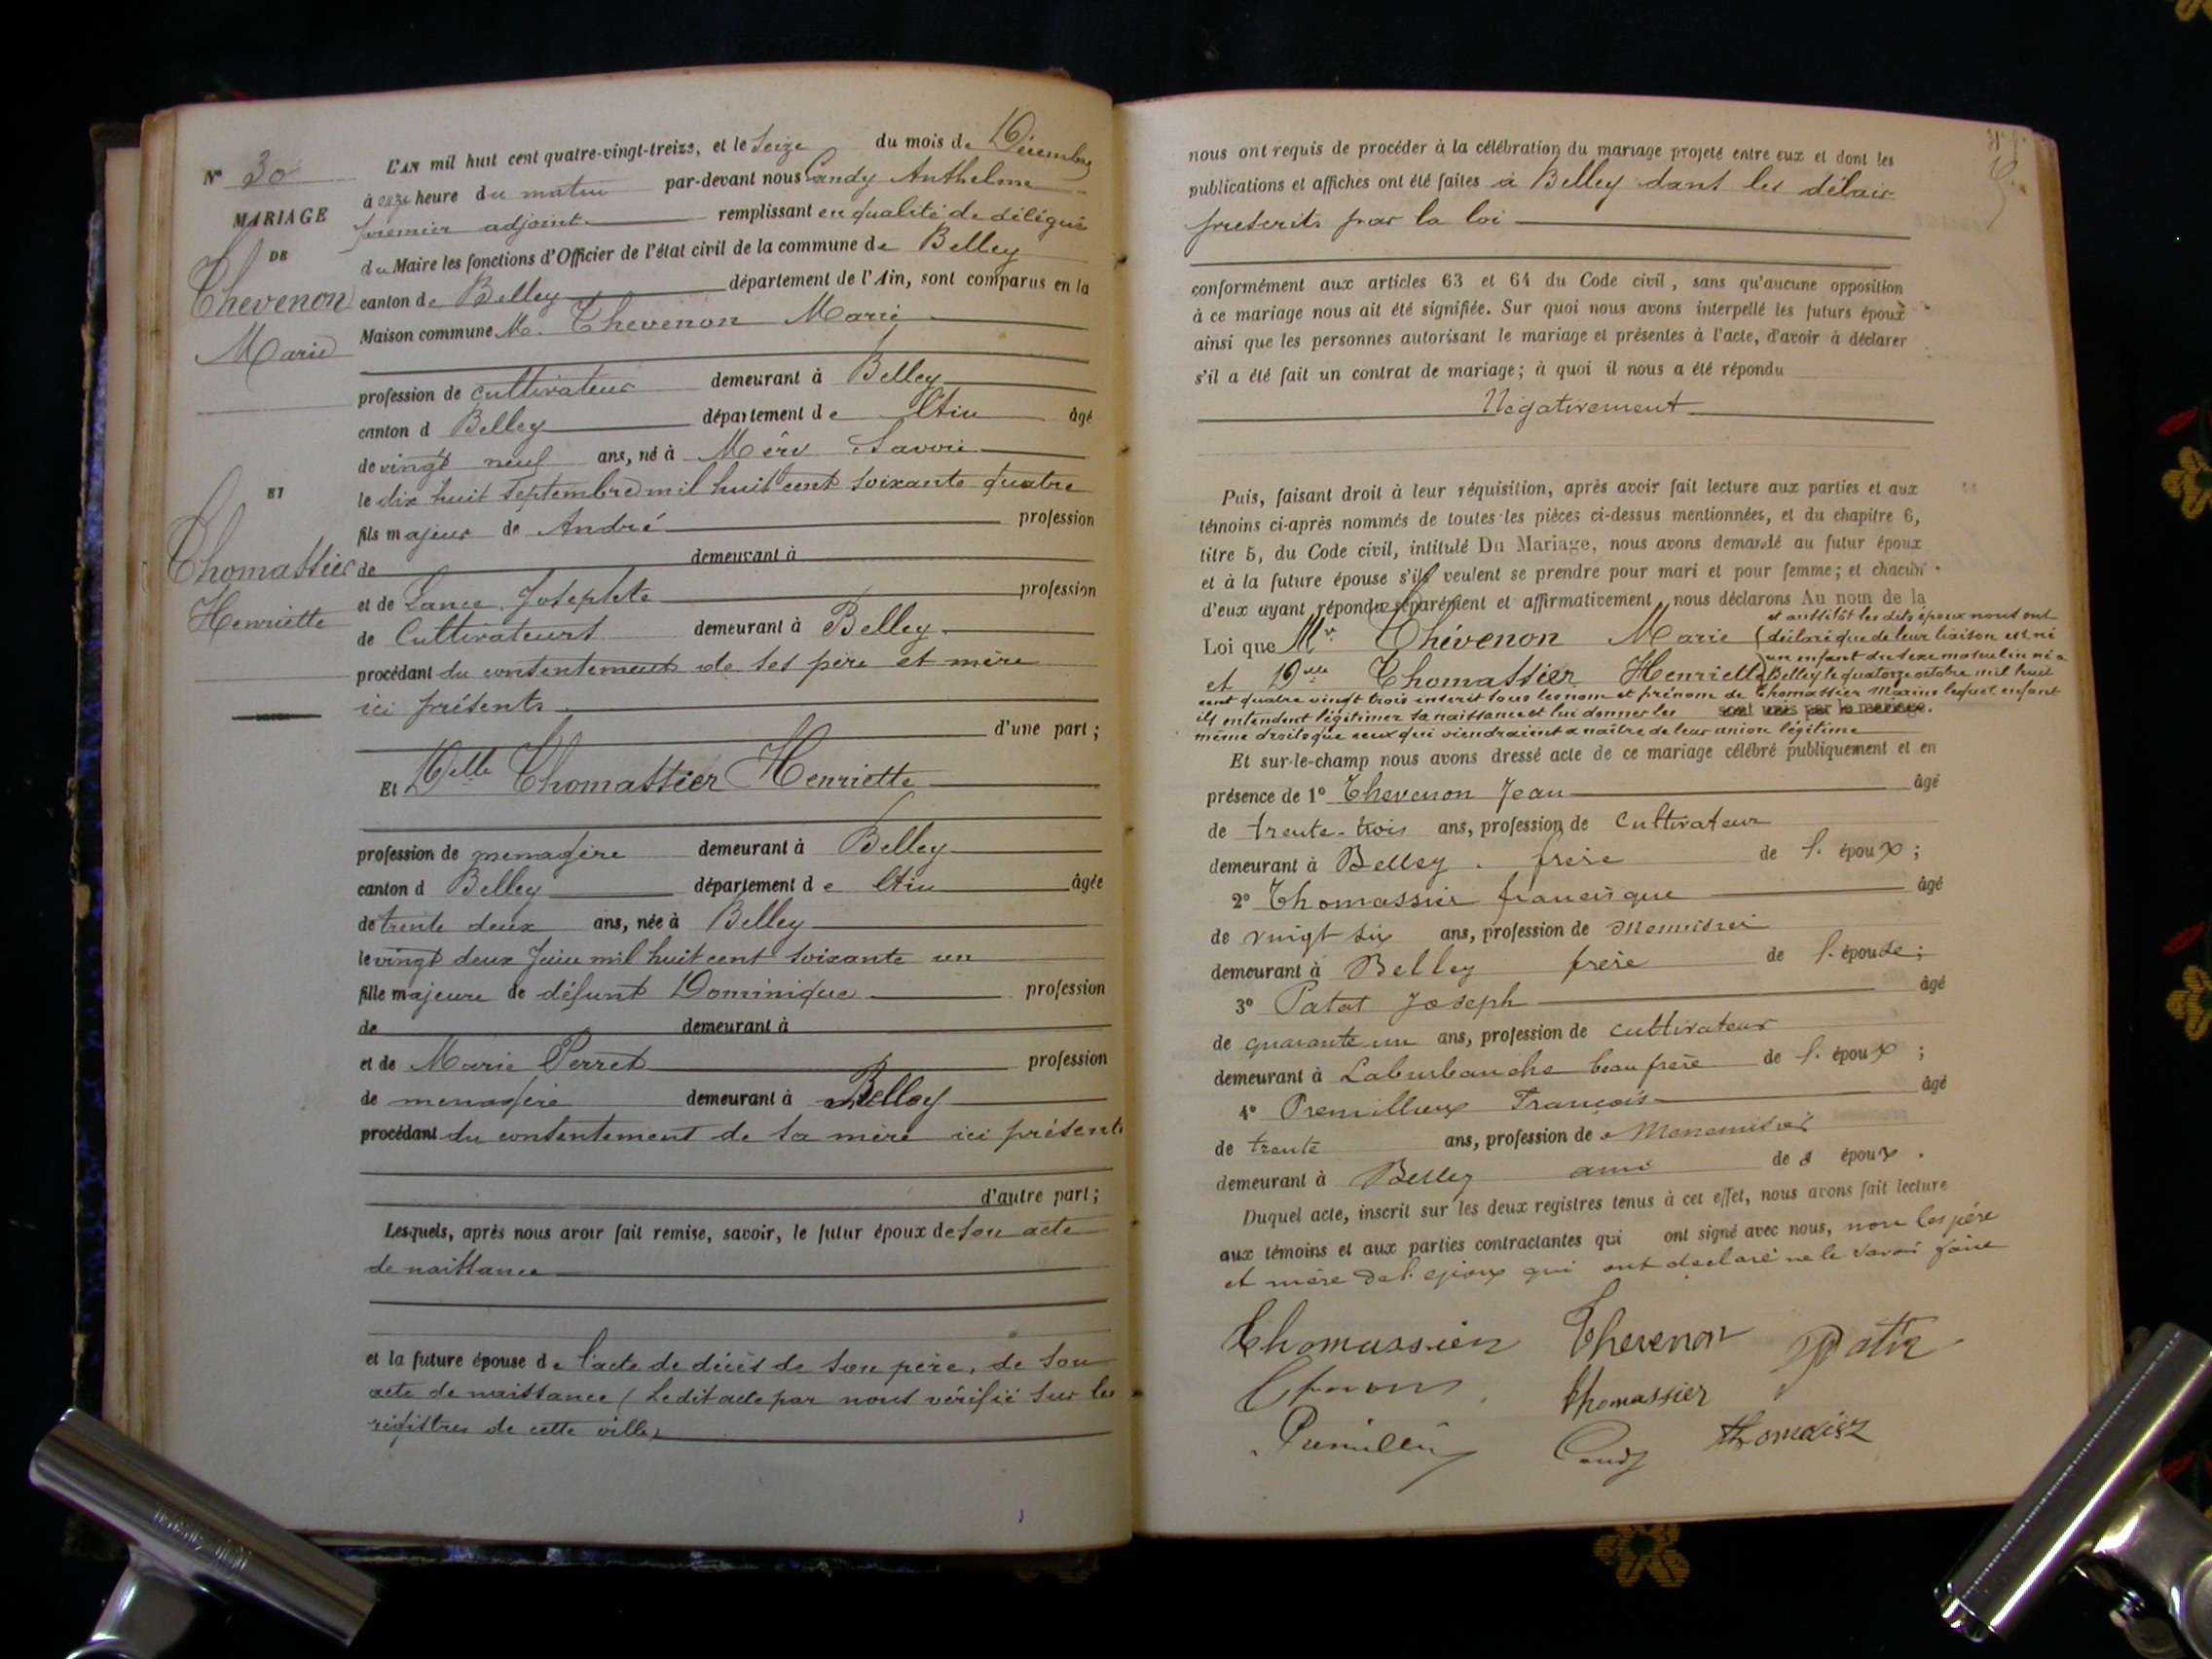 N° 30
MARIAGE
DE
Thevenon
Marie
ET
Thomassier
Henriette
L'AN mil huit cent quatre-vingt-treize, et le Seize du mois de Décembre
à onze heure du matin par-devant nous Candy Anthelme
premier adjoint remplissant en qualité de délégué
du Maire les fonctions d'Officier de l'état civil de la commune de Belley
canton de Belley département de l'Ain, sont comparus en la
Maison commune M. Thevenon Marie
profession de cultivateur demeurant à Belley
canton d Belley département de l'Ain âgé
de vingt neuf ans, né à Méry Savoie
le dix huit Septembre mil huit cent soixante quatre
fils majeur de André profession
de demeurant à
et de Lance Josephte profession
de Cultivateurs demeurant à Belley
procédant du consentement de ses père et mère
ici présents
d'une part ;
Et Delle Thomassier Henriette
profession de menagère demeurant à Belley
canton d Belley département de l'Ain âgée
de trente deux ans, née à Belley
le vingt deux Juin mil huit cent soixante un
fille majeure de défunt Dominique profession
de demeurant à
et de Marie Perret profession
de menagère demeurant à Belley
procédant du consentement de sa mère ici présente
d'autre part ;
Lesquels, après nous avoir fait remise, savoir, le futur époux de son acte
de naissance
et la future épouse de l'acte de décès de son père, de son
acte de naissance (Ledit acte par nous vérifié sur les
régistres de cette ville)
nous ont requis de procéder à la célébration du mariage projeté entre eux et dont les
publications et affiches ont été faites à Belley dans les délais
prescrits par la loi
conformément aux articles 63 et 64 du Code civil, sans qu'aucune opposition
à ce mariage nous ait été signifiée. Sur quoi nous avons interpellé les futurs époux
ainsi que les personnes autorisant le mariage et présentes à l'acte, d'avoir à déclarer
s'il a été fait un contrat de mariage; à quoi il nous a été répondu
Négativement
Puis, faisant droit à leur réquisition, après avoir fait lecture aux parties et aux
témoins ci-après nommés de toutes les pièces ci-dessus mentionnées, et du chapitre 6,
titre 5, du Code civil, intitulé Du Mariage, nous avons demandé au futur époux
et à la future épouse s'ils veulent se prendre pour mari et pour femme; et chacun
d'eux ayant répondu séparément et affirmativement, nous déclarons Au nom de la
Loi que Mr Thévenon Marie (et aussitôt les dits époux nous ont
déclaré que de leur liaison est né
et Delle Thomassier Henriette un enfant du sexe masculin né a
Belley le quatorze octobre mil huit
cent quatre vingt trois inscrit sous les nom et prénom de Thomassier Marius lequel enfant
ils entendent légitimer sa naissance et lui donner les sont unis par le mariage.
même droits que ceux qui viendraient a naître de leur union légitime
Et sur-le-champ nous avons dressé acte de ce mariage célébré publiquement et en
présence de 1° Thevenon Jean âgé
de trente-trois ans, profession de Cultivateur
demeurant à Belley . frère de l'époux ;
2° Thomassier francisque âgé
de vingt six ans, profession de Menuisier
demeurant à Belley frère de l'épouse ;
3° Patat Joseph âgé
de quarante un ans, profession de cultivateur
demeurant à Laburbanche beau frère de l'époux ;
4° Premillieux François âgé
de trente ans, profession de Menuisier
demeurant à Belley ami des époux .
Duquel acte, inscrit sur les deux registres tenus à cet effet, nous avons fait lecture
aux témoins et aux parties contractantes qui ont signé avec nous, non les père
et mère de l'époux qui ont declaré ne le savoir faire
Thomassier Thevenon
Thomassier
Candy